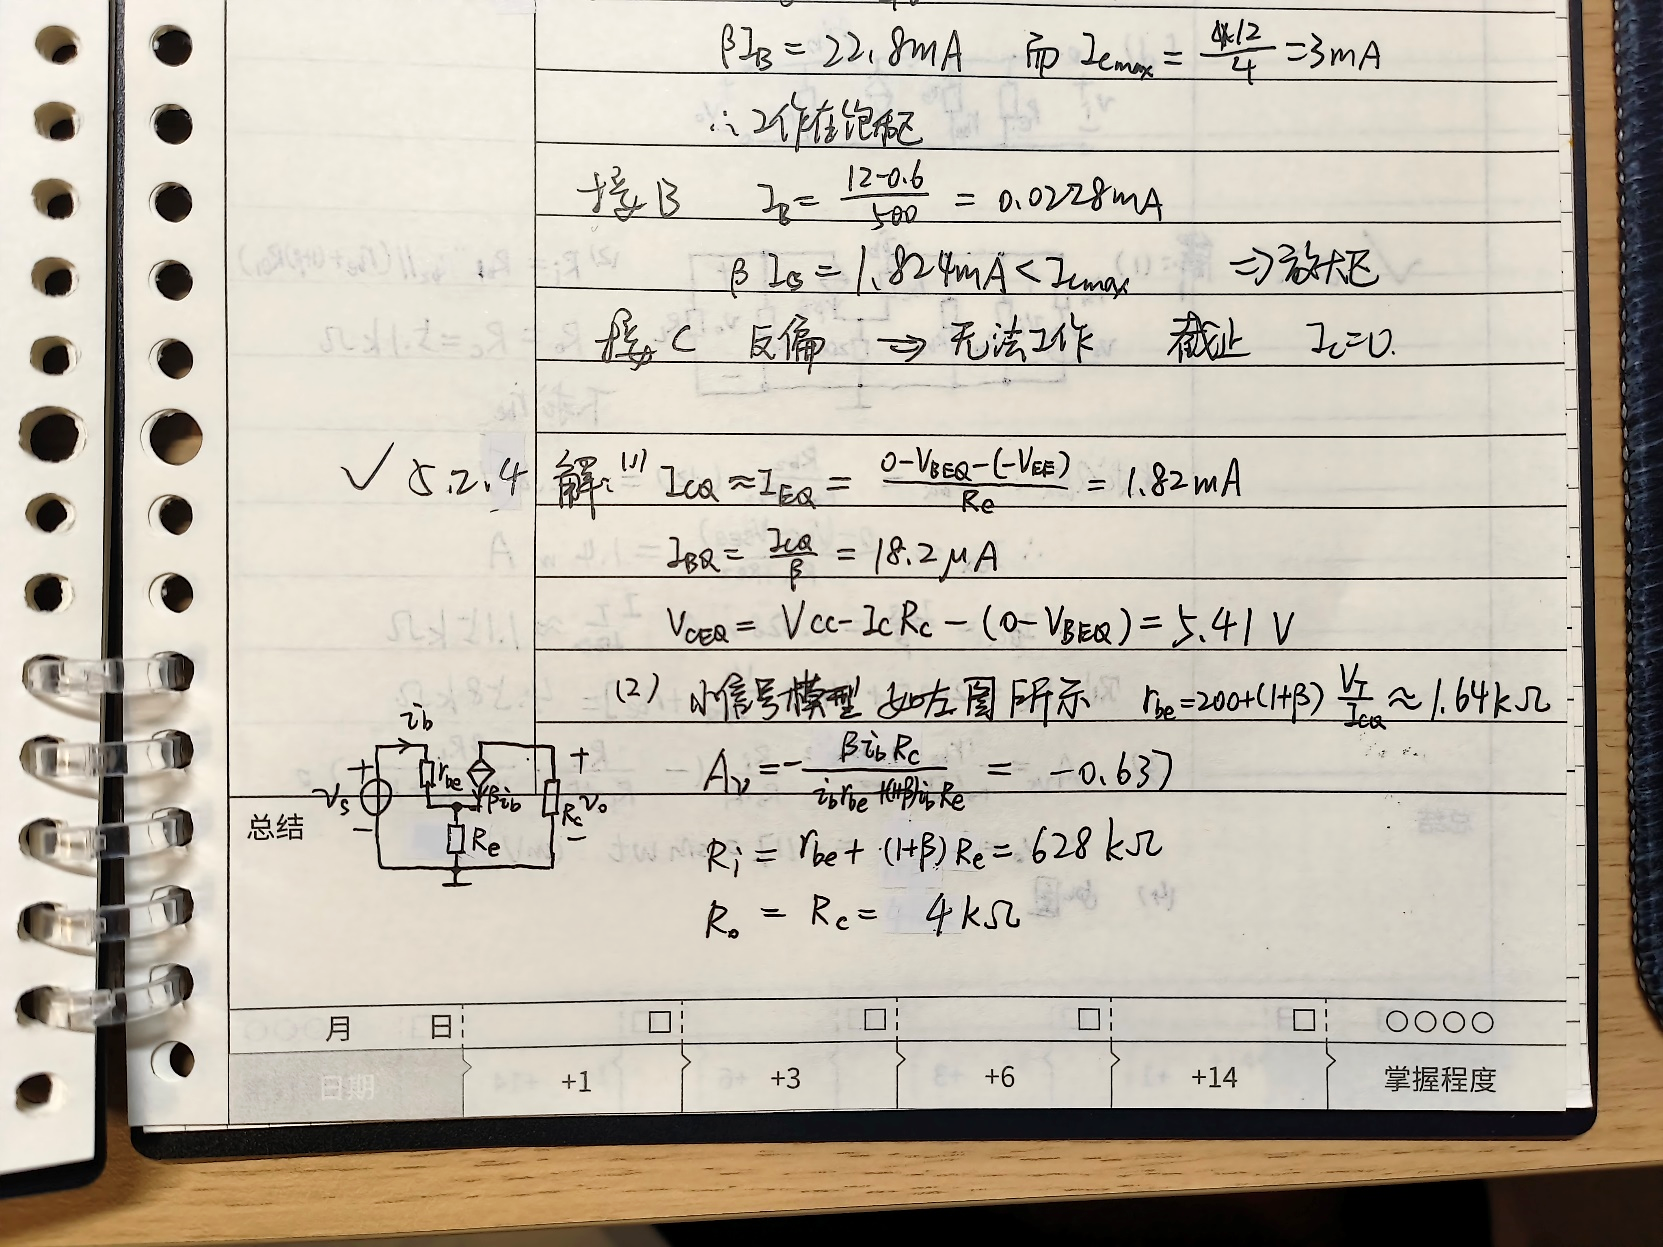 βI_B = 22.8mA 而 I_cmax = 12/4 = 3mA
∴ 工作在饱和区
接B I_B = (12-0.6)/500 = 0.0228mA
βI_B = 1.824mA < I_cmax ⇒ 放大区
接C 反偏 ⇒ 无法工作 截止 I_C=0.
√ 5.2.4 解: (1) I_CQ ≈ I_EQ = (0-V_BEQ-(-V_EE))/R_e = 1.82mA
I_BQ = I_CQ/β = 18.2μA
V_CEQ = V_CC - I_C R_C - (0-V_BEQ) = 5.41V
(2) 小信号模型如左图所示 r_be=200+(1+β) V_T/I_CQ ≈ 1.64kΩ
A_v = -βi_bR_c/(i_br_be+(1+β)i_bR_e) = -0.637
R_i = r_be + (1+β)R_e = 628kΩ
R_o = R_c = 4kΩ
i_b
+ v_s - r_be βi_b R_e R_c + v_o -
总结
月 日
日期 +1 +3 +6 +14 掌握程度